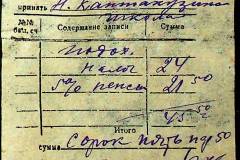 принять Н. Кантакузина
школа
№№ бал. сч
Содержание записи
Сумма
подох.
налог 24
5% пенси 21 50
45 50
Итого
сумма сорок пять р 50